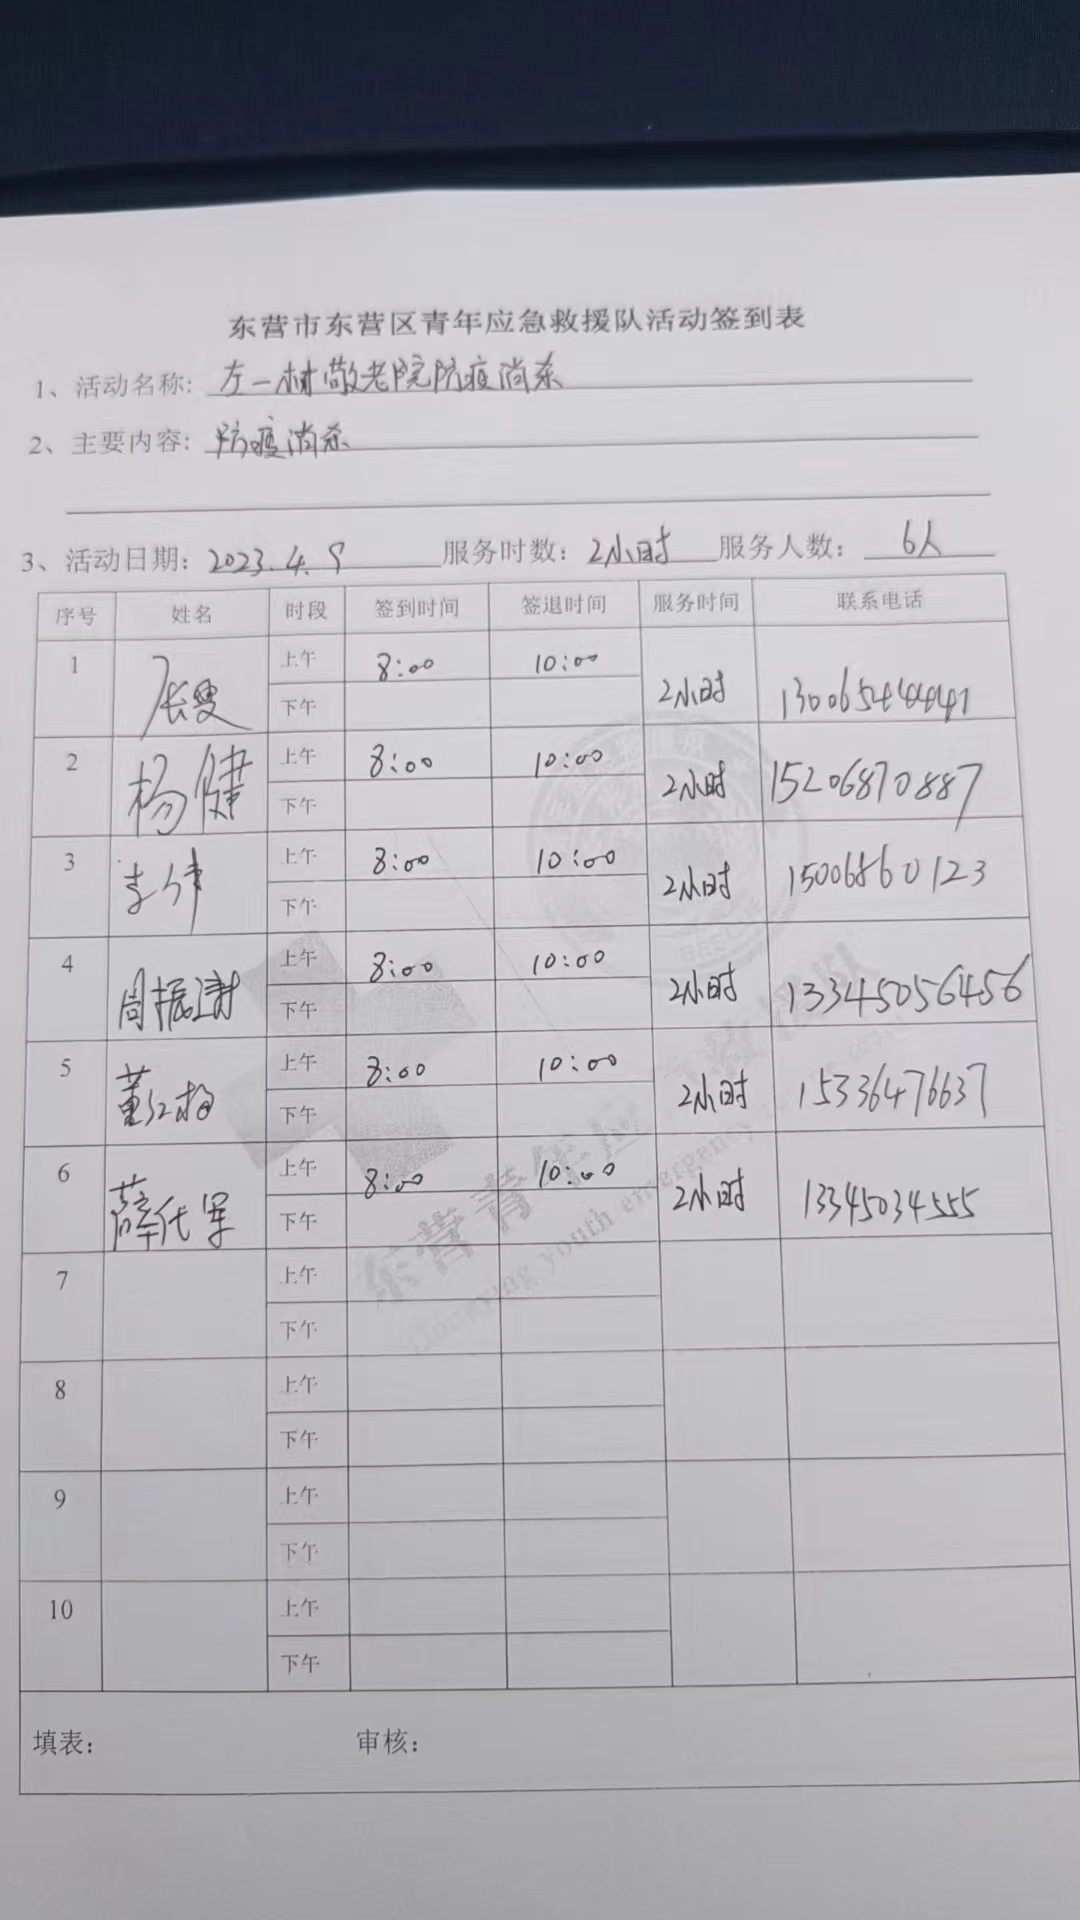 东营市东营区青年应急救援队活动签到表
1、活动名称: 左一村敬老院防疫消杀
2、主要内容: 防疫消杀
3、活动日期: 2023.4.9 服务时数: 2小时 服务人数: 6人
序号 姓名 时段 签到时间 签退时间 服务时间 联系电话
1 张叟 上午 8:00 10:00 2小时 13006544441
下午
2 杨健 上午 8:00 10:00 2小时 15206870887
下午
3 李伟 上午 8:00 10:00 2小时 15006860123
下午
4 周振 上午 8:00 10:00 2小时 13345056456
下午
5 董红梅 上午 8:00 10:00 2小时 15336476637
下午
6 薛代军 上午 8:00 10:00 2小时 13345034555
下午
7 上午
下午
8 上午
下午
9 上午
下午
10 上午
下午
填表: 审核:
东营青年应急救援队
Dongying youth emergency